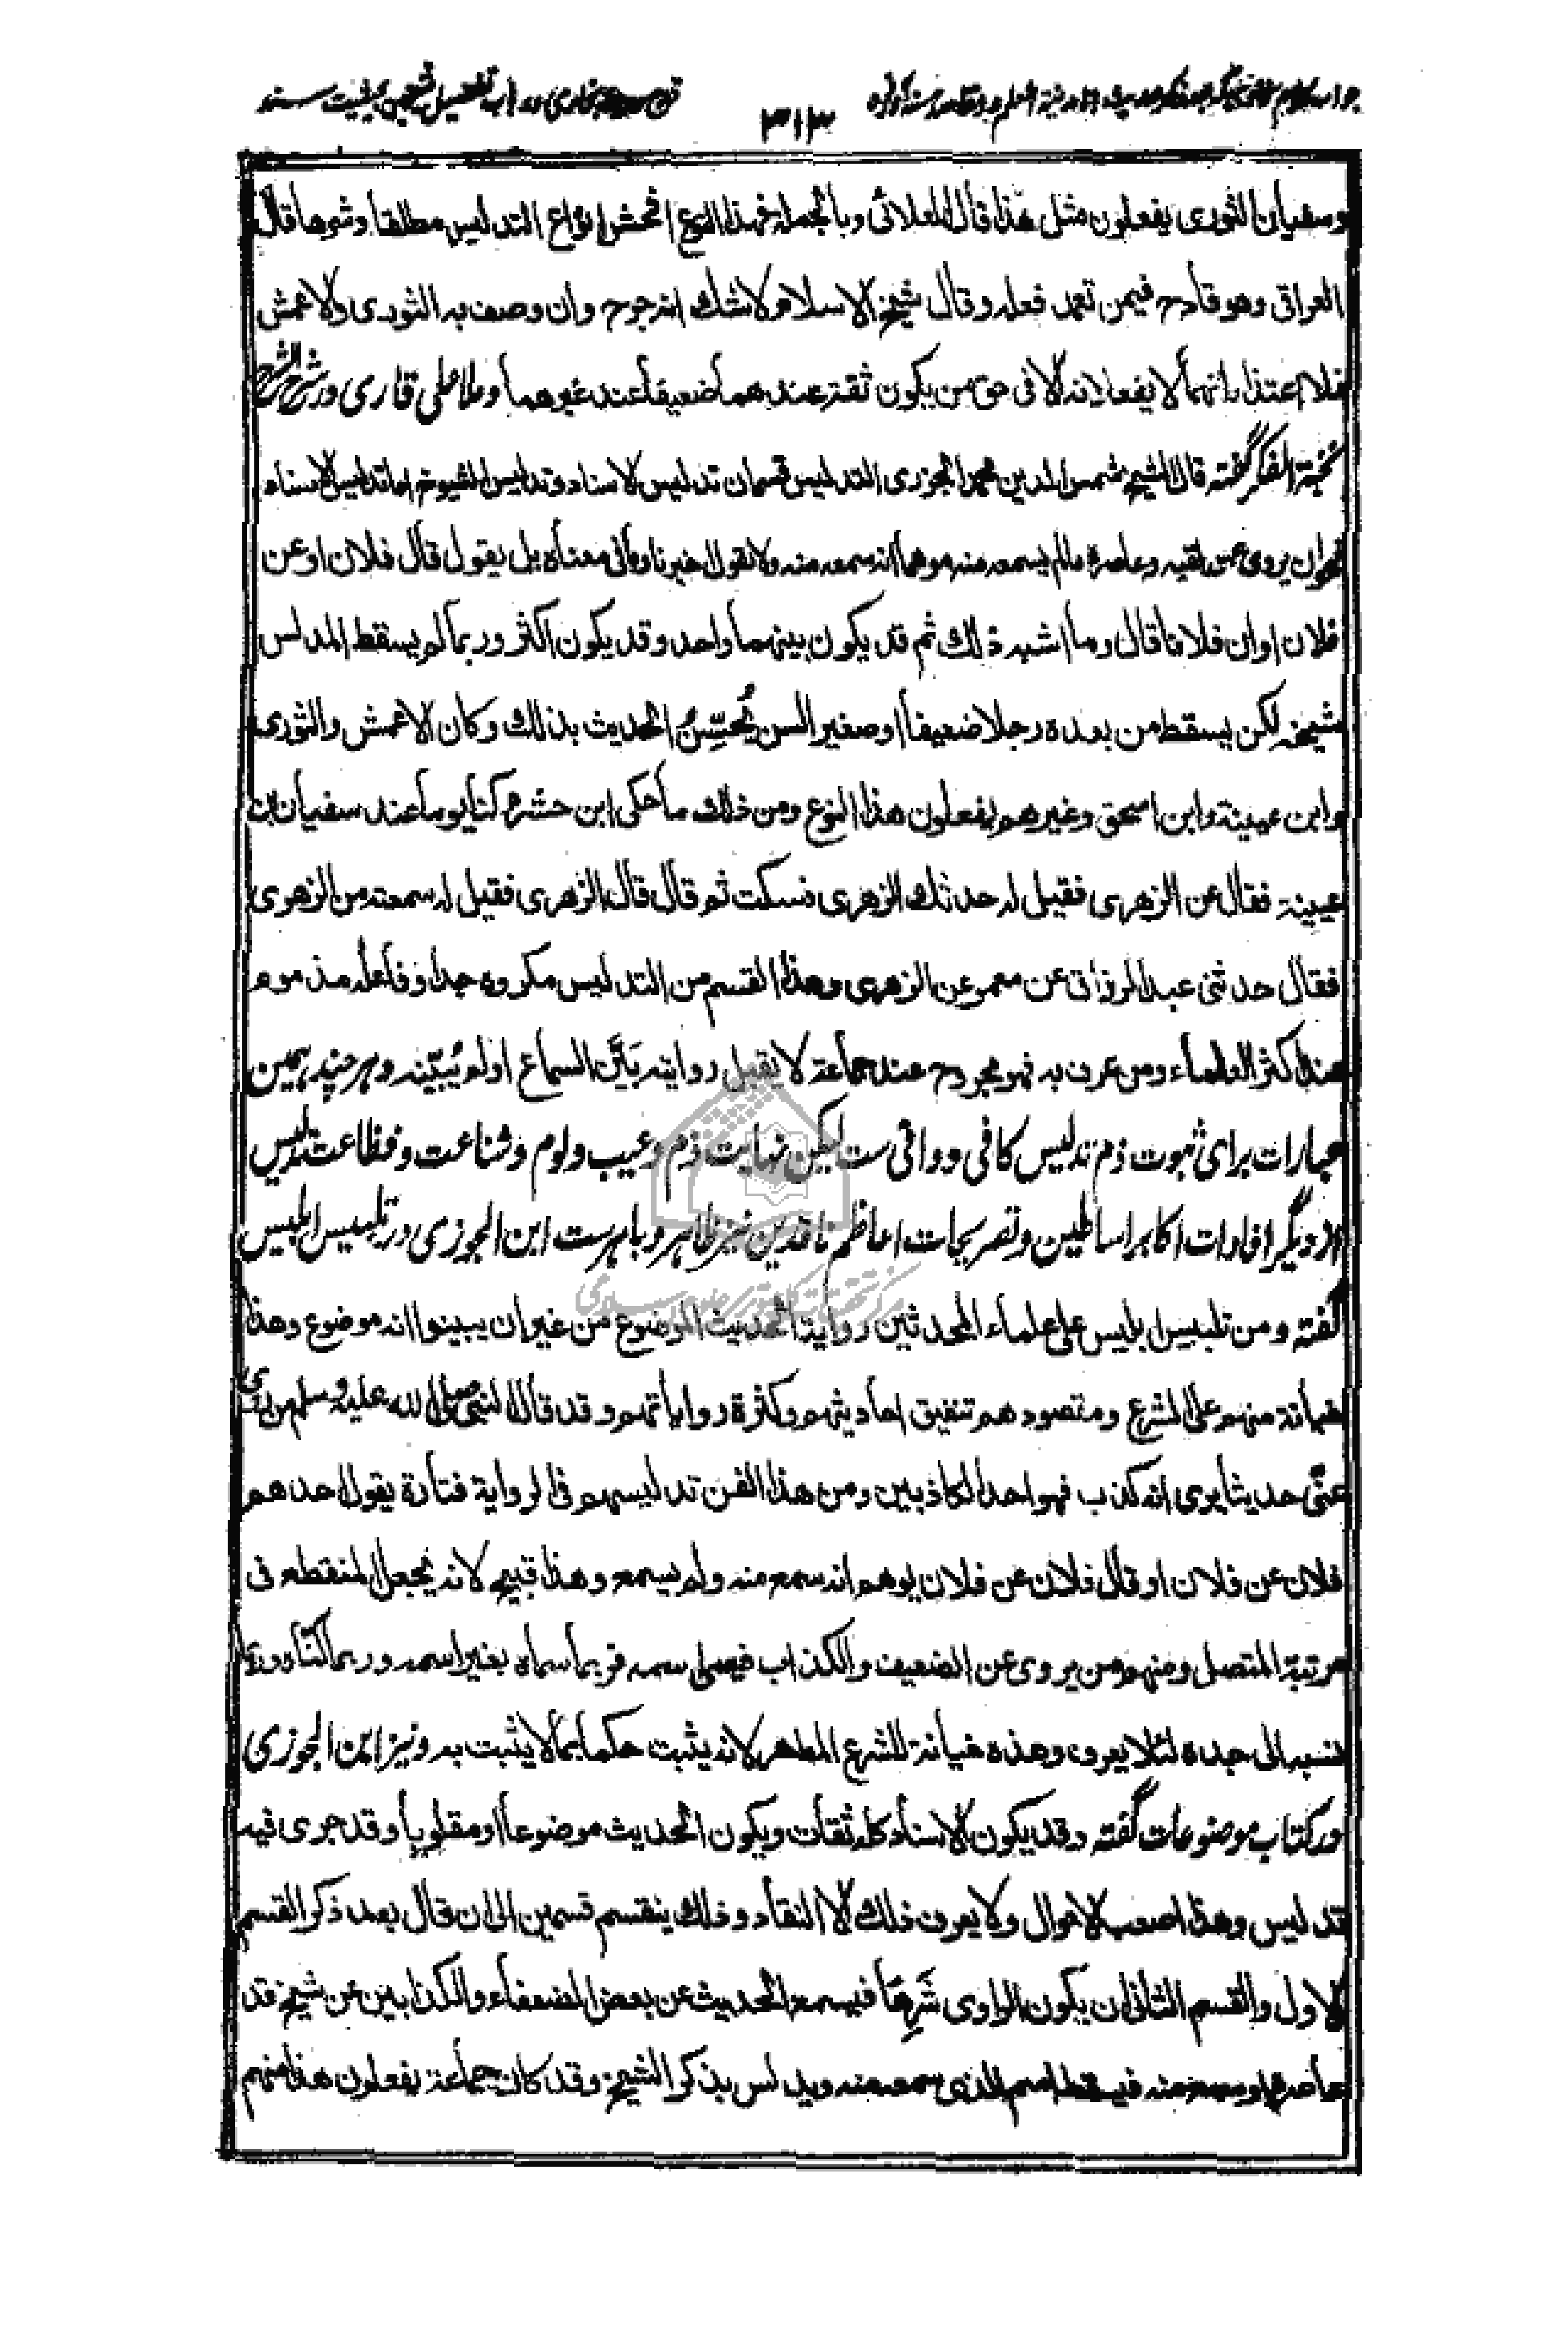 ٣١٣
وسفيان الثوري يفعلون مثل هذا قال العلائي وبالجملة فهذا النوع افحش انواع التدليس مطلقا وشرها قال
العراقي وهو قادح فيمن تعمد فعله وقال شيخ الاسلام لا شك انه جرح وان وصف به الثوري والاعمش
فلا اعتذار انهما لا يفعلانه الا في حق من يكون ثقة عندهما ضعيفا عند غيرهما وملا علي قاري در شرح الشرح
نخبة الفكر گفته قال الشيخ شمس الدين محمد الجوزري التدليس قسمان تدليس الاسناد وتدليس الشيوخ اما تدليس الاسناد
فهو ان يروي عمن لقيه وعاصره ما لم يسمعه منه موهما انه سمعه منه ولا يقول اخبرنا وما في معناه بل يقول قال فلان او عن
فلان او ان فلانا قال وما اشبه ذلك ثم قد يكون بينهما واحد وقد يكون اكثر وربما لم يسقط المدلس
شيخه لكن يسقط من بعده رجلا ضعيفا او صغير السن يُحسِّنُ الحديث بذلك وكان الاعمش والثوري
وابن عيينة وابن اسحق وغيرهم يفعلون هذا النوع ومن ذلك ما حكى ابن خشرم كنا يوما عند سفيان بن
عيينة فقال عن الزهري فقيل له حدثك الزهري فسكت ثم قال قال الزهري فقيل له سمعته من الزهري
فقال حدثني عبد الرزاق عن معمر عن الزهري وهذا القسم من التدليس مكروه جدا وفاعله مذموم
عند اكثر العلماء ومن عرف به فهو مجروح عند جماعة لا يقبل روايته بَيَّن السماع او لم يُبيّنه وهر چند همين
عبارات براى ثبوت ذم تدليس كافى ووافى ست ليكن نهايت ذم وعيب ولوم وشناعت وفظاعت تدليس
از ديگر افادات اكابر اساطين وتصريحات اعاظم ناقدين نيز ظاهر وباهرست ابن الجوزي در تلبيس ابليس
گفته ومن تلبيس ابليس على علماء المحدثين رواية الحديث الموضوع من غير ان يبينوا انه موضوع وهذا
خيانة منهم على الشرع ومقصودهم تنفيق احاديثهم وكثرة رواياتهم وقد قال النبي صلى الله عليه وسلم من روى
عنّي حديثا يرى انه كذب فهو احد الكاذبين ومن هذا الفن تدليسهم في الرواية فتارة يقول احدهم
فلان عن فلان او قال فلان عن فلان يوهم انه سمع منه ولم يسمع وهذا قبيح لانه يجعل المنقطع في
مرتبة المتصل ومنهم من يروي عن الضعيف والكذاب فيعمى اسمه فربما سماه بغير اسمه وربما كناه وربما
نسبه الى جده لئلا يعرف وهذه خيانة للشرع المطهر لانه يثبت حكما بما لا يثبت به ونيز ابن الجوزي
در كتاب موضوعات گفته وقد يكون الاسناد كله ثقات ويكون الحديث موضوعا او مقلوبا وقد جرى فيه
تدليس وهذا اصعب الاحوال ولا يعرف ذلك الا النقاد وذلك ينقسم قسمين الى ان قال بعد ذكر القسم
الاول والقسم الثاني ان يكون الراوي شَرِهًا فيسمع الحديث عن بعض الضعفاء والكذابين عن شيخ قد
عاصره او سمع منه فيسقط اسم الذي سمعه منه ويدلس بذكر الشيخ وقد كان جماعة يفعلون هذا منهم